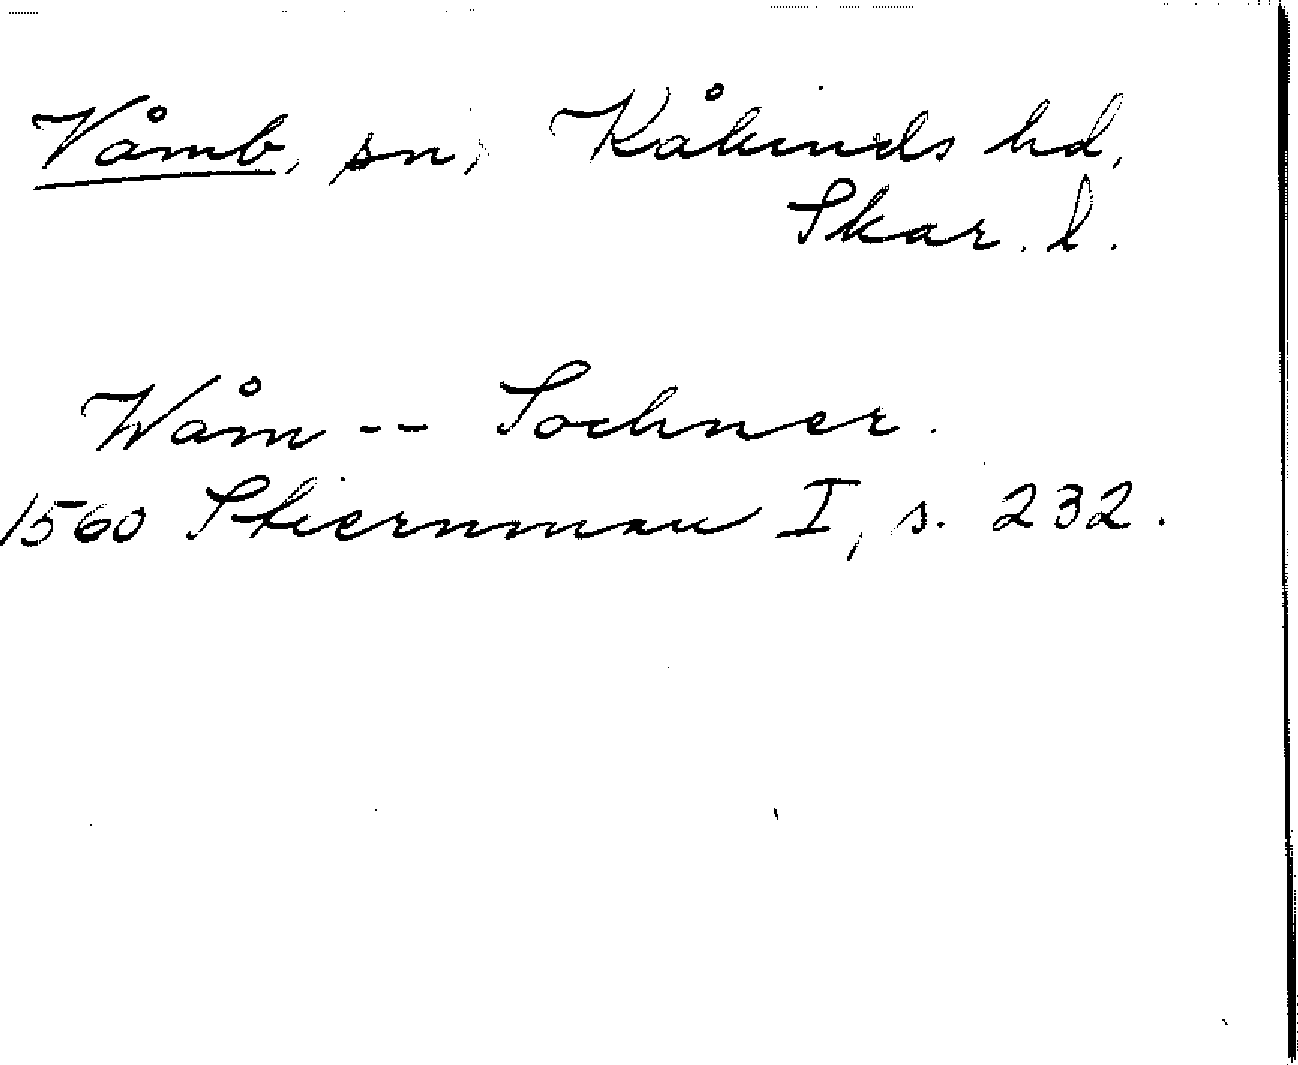 Våmb, sn, Kåkinds hd,
Skar. l.
Wåm -- Sochner.
1560 Stiernman I, s. 232.